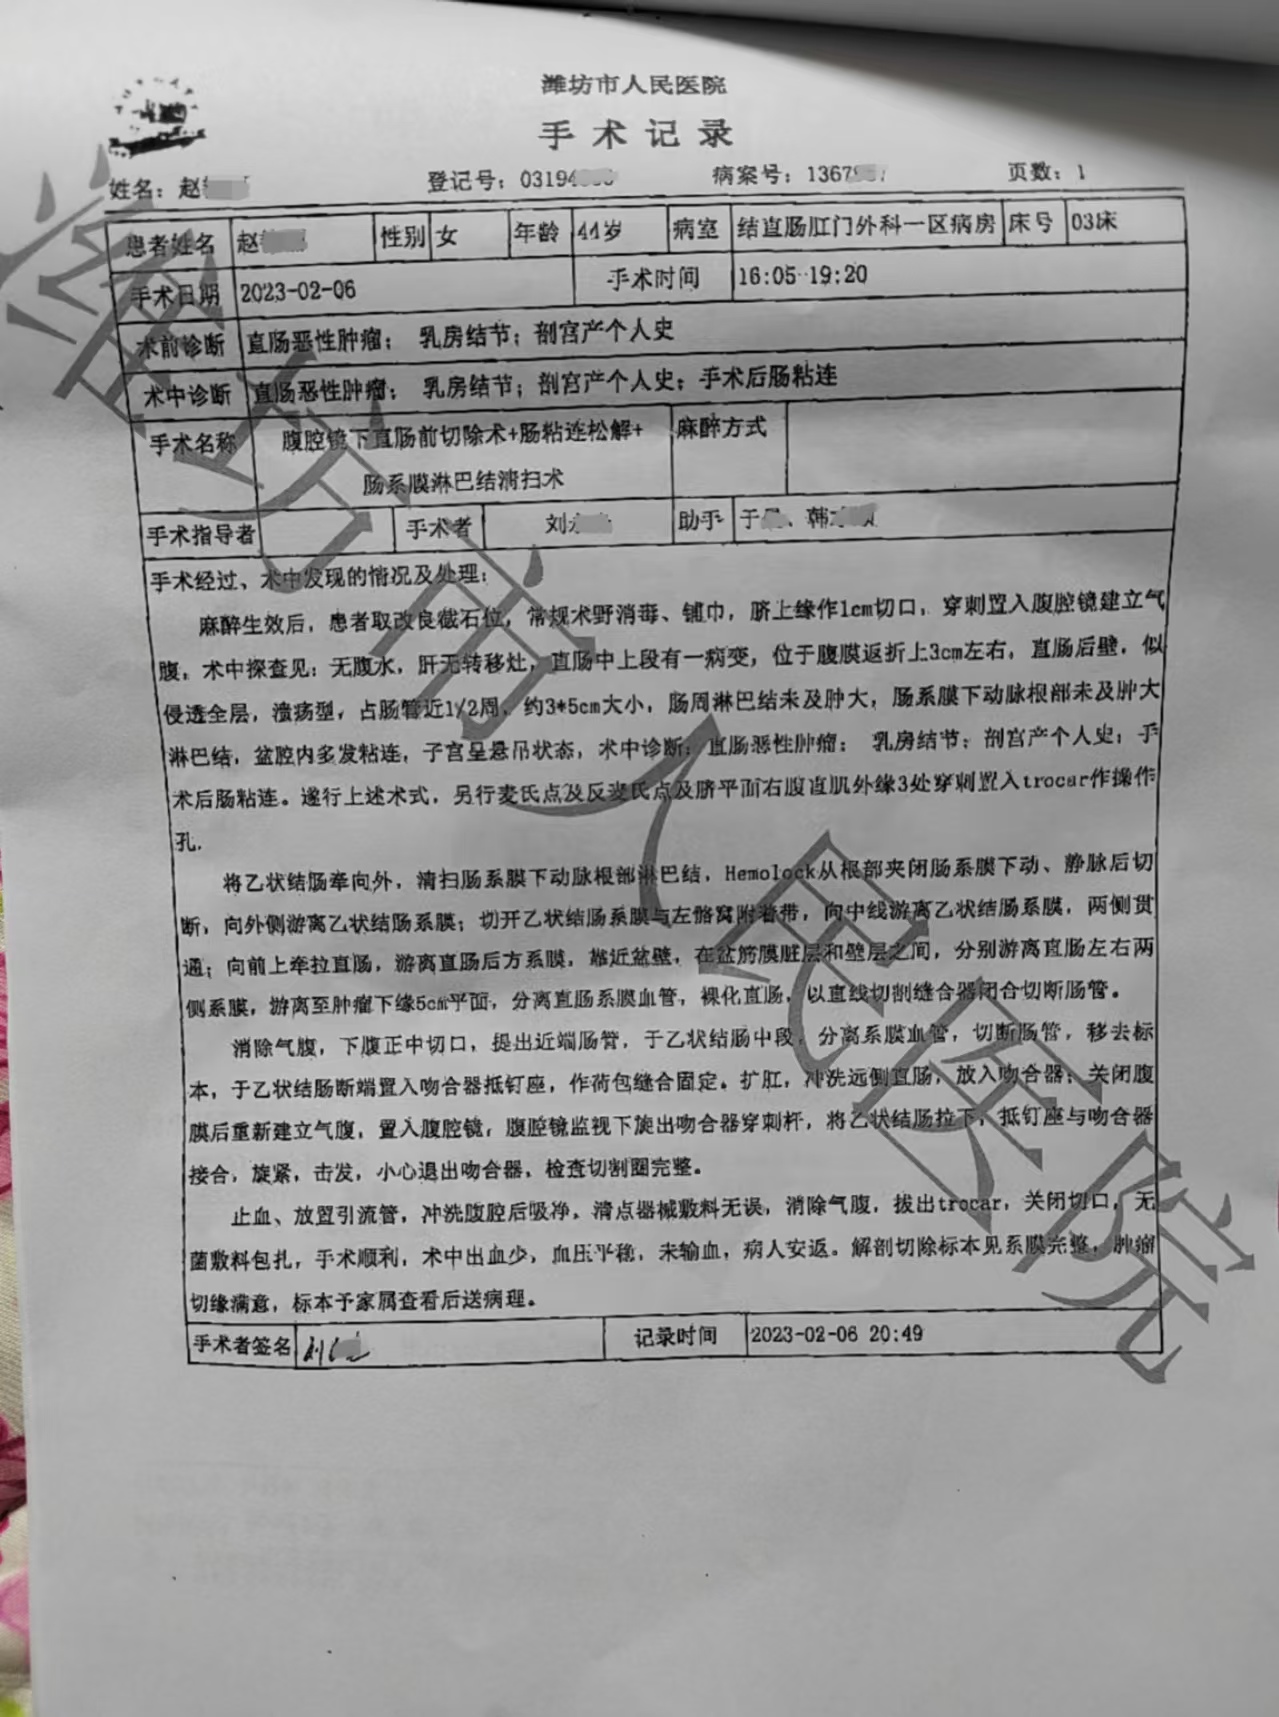 潍坊市人民医院
手术记录
姓名：赵 登记号：03194 病案号：1367 页数：1
患者姓名 赵 性别 女 年龄 44岁 病室 结直肠肛门外科一区病房 床号 03床
手术日期 2023-02-06 手术时间 16:05-19:20
术前诊断 直肠恶性肿瘤； 乳房结节；剖宫产个人史
术中诊断 直肠恶性肿瘤； 乳房结节；剖宫产个人史；手术后肠粘连
手术名称 腹腔镜下直肠前切除术+肠粘连松解+ 麻醉方式
肠系膜淋巴结清扫术
手术指导者 手术者 刘 助手 于 、韩
手术经过、术中发现的情况及处理：
麻醉生效后，患者取改良截石位，常规术野消毒、铺巾，脐上缘作1cm切口，穿刺置入腹腔镜建立气
腹，术中探查见：无腹水，肝无转移灶，直肠中上段有一病变，位于腹膜返折上3cm左右，直肠后壁，似
侵透全层，溃疡型，占肠管近1/2周，约3*5cm大小，肠周淋巴结未及肿大，肠系膜下动脉根部未及肿大
淋巴结，盆腔内多发粘连，子宫呈悬吊状态，术中诊断：直肠恶性肿瘤； 乳房结节；剖宫产个人史；手
术后肠粘连。遂行上述术式，另行麦氏点及反麦氏点及脐平面右腹直肌外缘3处穿刺置入trocar作操作
孔.
将乙状结肠牵向外，清扫肠系膜下动脉根部淋巴结，Hemolock从根部夹闭肠系膜下动、静脉后切
断，向外侧游离乙状结肠系膜；切开乙状结肠系膜与左髂窝附着带，向中线游离乙状结肠系膜，两侧贯
通；向前上牵拉直肠，游离直肠后方系膜，靠近盆壁，在盆筋膜脏层和壁层之间，分别游离直肠左右两
侧系膜，游离至肿瘤下缘5cm平面，分离直肠系膜血管，裸化直肠，以直线切割缝合器闭合切断肠管。
消除气腹，下腹正中切口，提出近端肠管，于乙状结肠中段，分离系膜血管，切断肠管，移去标
本，于乙状结肠断端置入吻合器抵钉座，作荷包缝合固定。扩肛，冲洗远侧直肠，放入吻合器；关闭腹
膜后重新建立气腹，置入腹腔镜，腹腔镜监视下旋出吻合器穿刺杆，将乙状结肠拉下，抵钉座与吻合器
接合，旋紧，击发，小心退出吻合器，检查切割圈完整。
止血、放置引流管，冲洗腹腔后吸净，清点器械敷料无误，消除气腹，拔出trocar，关闭切口，无
菌敷料包扎，手术顺利，术中出血少，血压平稳，未输血，病人安返。解剖切除标本见系膜完整，肿瘤
切缘满意，标本予家属查看后送病理。
手术者签名 刘 记录时间 2023-02-06 20:49
潍坊市人民医院